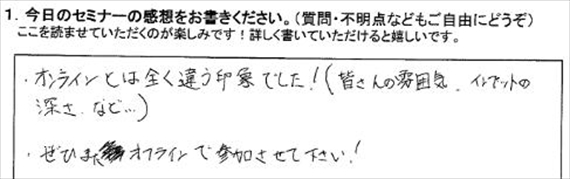 1. 今日のセミナーの感想をお書きください。（質問・不明点などもご自由にどうぞ）
ここを読ませていただくのが楽しみです！詳しく書いていただけると嬉しいです。
・オンラインとは全く違う印象でした！（皆さんの雰囲気、インプットの
深さ、など…）
・ぜひまたオフラインで参加させて下さい！